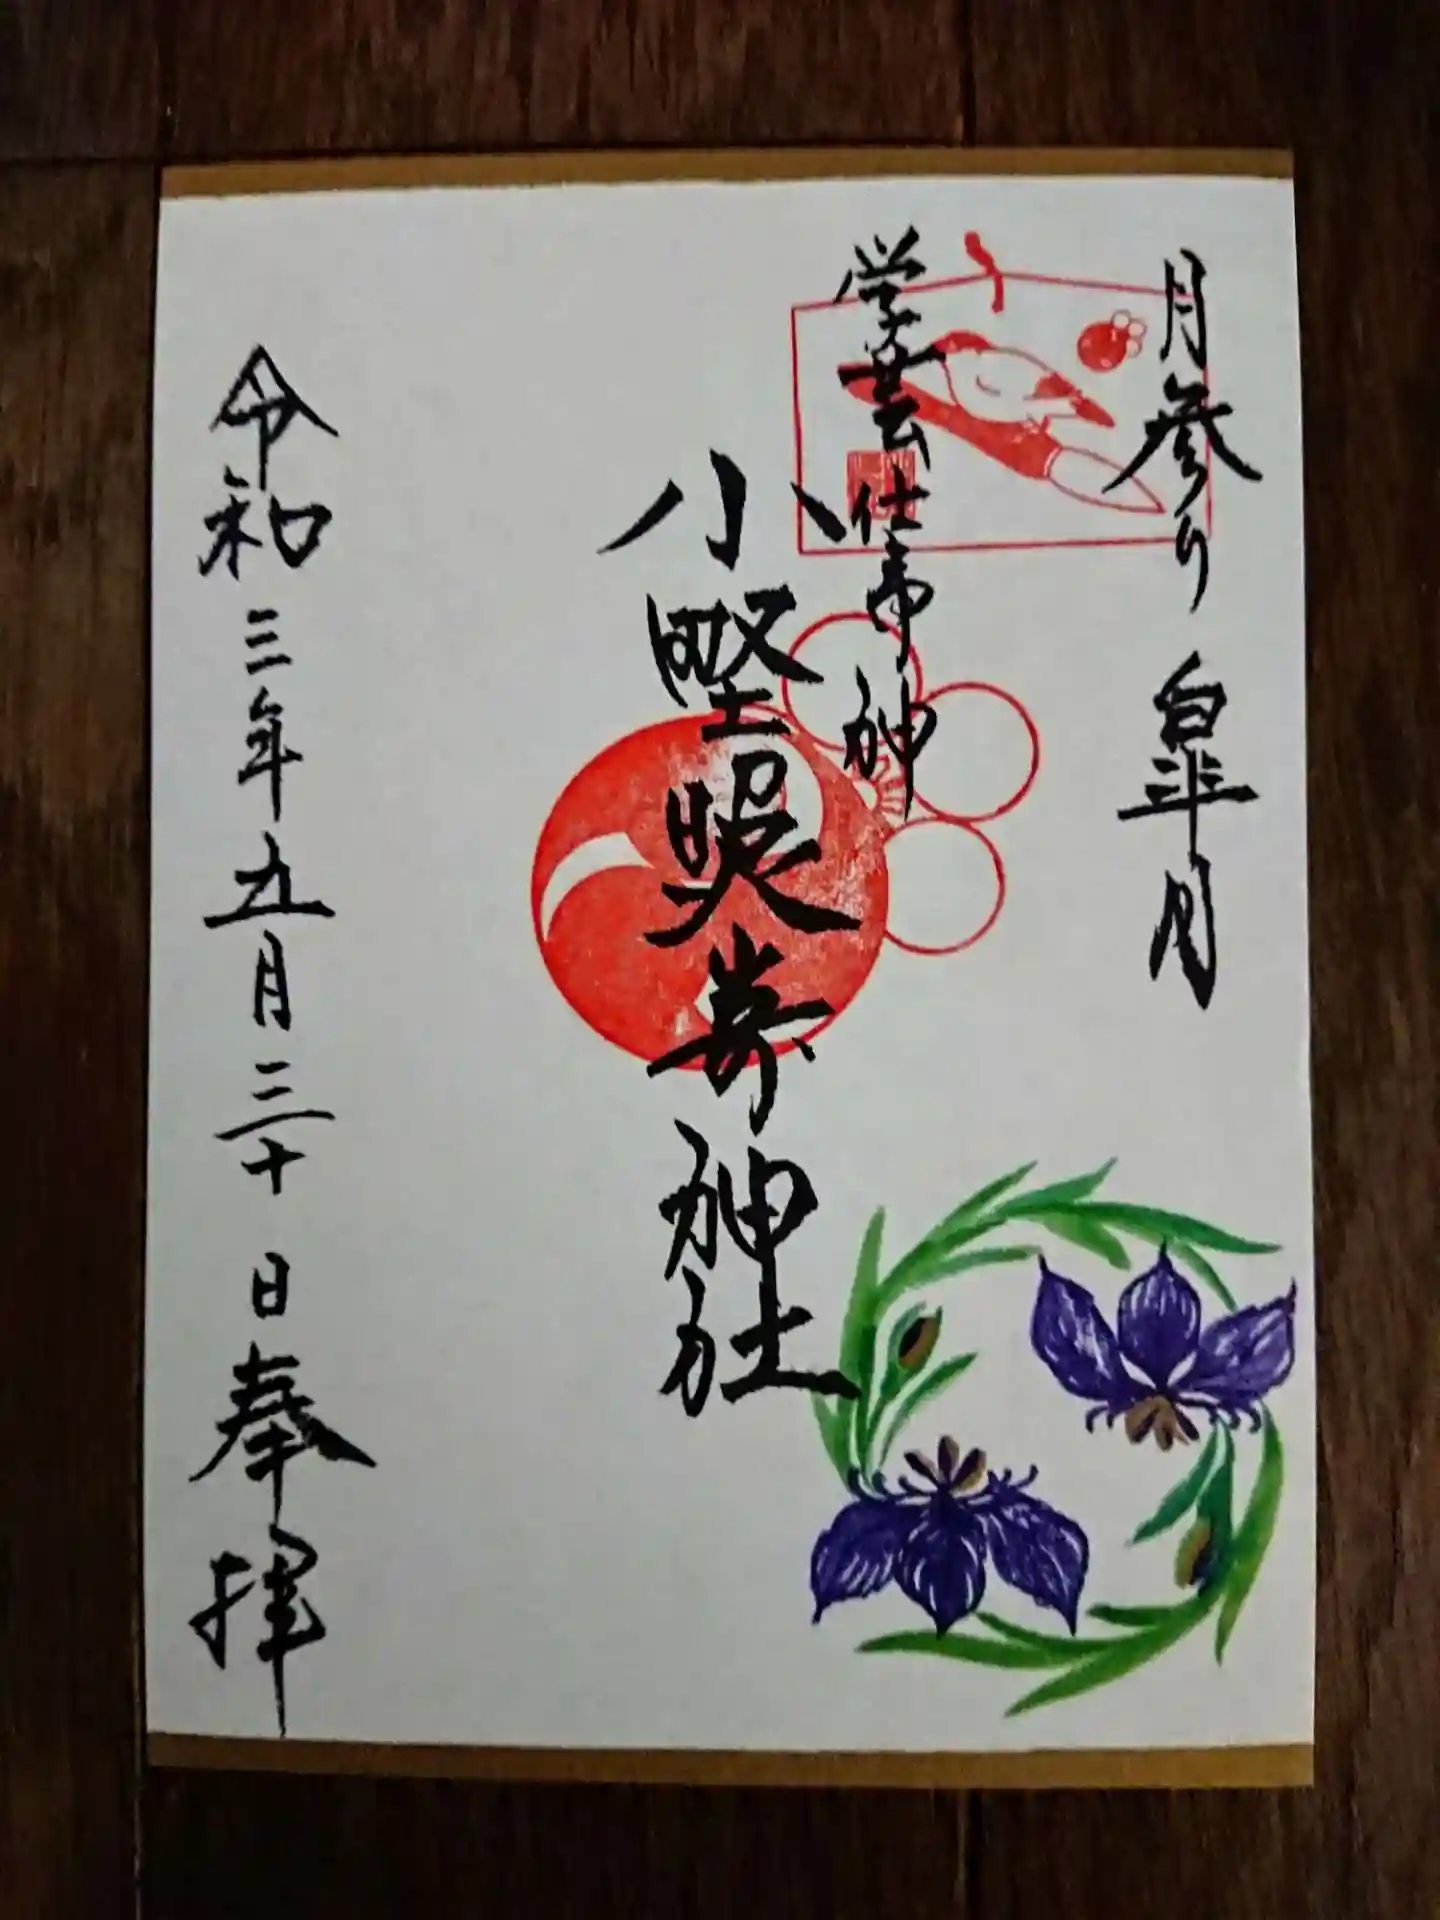 月参り 皐月
学芸仕事神
小野照崎神社
令和三年五月三十日奉拝